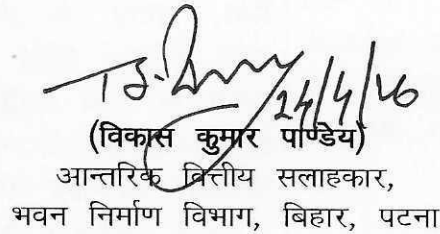 24/4/26
(विकास कुमार पाण्डेय)
आन्तरिक वित्तीय सलाहकार,
भवन निर्माण विभाग, बिहार, पटना